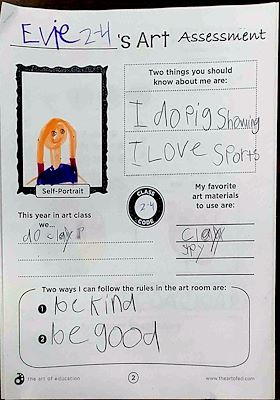 Evie 2-4 's Art Assessment
Two things you should
know about me are:
I do pig showing
I LOVE Sports
Self-Portrait
CLASS
2-4
CODE
This year in art class
we...
do clay
My favorite
art materials
to use are:
clay
Two ways I can follow the rules in the art room are:
1 be kind
2 be good
the art of education
2
www.theartofed.com